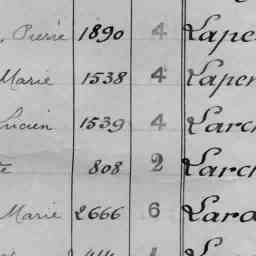 , Pierre 1890 4 Lape
Marie 1538 4 Laper
Lucien 1539 4 Larc
te 808 2 Larc
Marie 2666 6 Lard